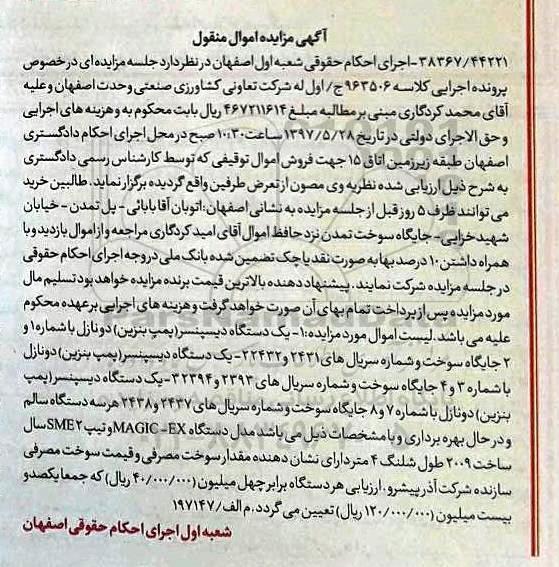 آگهی مزایده اموال منقول
۳۸۳۶۷/۴۴۲۲۱-اجرای احکام حقوقی شعبه اول اصفهان در نظر دارد جلسه مزایده ای در خصوص
پرونده اجرایی کلاسه ۹۶۳۵۰۶ ج/ اول له شرکت تعاونی کشاورزی صنعتی وحدت اصفهان و علیه
آقای محمد کردگاری مبنی بر مطالبه مبلغ ۴۶۷۲۱۱۶۱۴ ریال بابت محکوم به و هزینه های اجرایی
و حق الاجرای دولتی در تاریخ ۱۳۹۷/۵/۲۸ ساعت ۱۰:۳۰ صبح در محل اجرای احکام دادگستری
اصفهان طبقه زیرزمین اتاق ۱۵ جهت فروش اموال توقیفی که توسط کارشناس رسمی دادگستری
به شرح ذیل ارزیابی شده نظریه وی مصون از تعرض طرفین واقع گردیده برگزار نماید. طالبین خرید
می توانند ظرف ۵ روز قبل از جلسه مزایده به نشانی اصفهان: اتوبان آقابابائی - پل تمدن - خیابان
شهید خزایی- جایگاه سوخت تمدن نزد حافظ اموال آقای امید کردگاری مراجعه و از اموال بازدید و با
همراه داشتن ۱۰ درصد بها به صورت نقد یا چک تضمین شده بانک ملی در وجه اجرای احکام حقوقی
در جلسه مزایده شرکت نمایند. پیشنهاد دهنده بالاترین قیمت برنده مزایده خواهد بود تسلیم مال
مورد مزایده پس از پرداخت تمام بهای آن صورت خواهد گرفت و هزینه های اجرایی بر عهده محکوم
علیه می باشد. لیست اموال مورد مزایده: ۱- یک دستگاه دیسپنسر (پمپ بنزین) دو نازل با شماره ۱ و
۲ جایگاه سوخت و شماره سریال های ۲۴۳۱ و ۲۴۳۲ ۲- یک دستگاه دیسپنسر (پمپ بنزین) دو نازل
با شماره ۳ و ۴ جایگاه سوخت و شماره سریال های ۲۳۹۳ و ۲۳۹۴ ۳- یک دستگاه دیسپنسر (پمپ
بنزین) دو نازل با شماره ۷ و ۸ جایگاه سوخت و شماره سریال های ۲۴۳۷ و ۲۴۳۸ هر سه دستگاه سالم
و در حال بهره برداری و با مشخصات ذیل می باشد مدل دستگاه MAGIC-EX و تیپ SME۲ سال
ساخت ۲۰۰۹ طول شلنگ ۴ متر دارای نشان دهنده مقدار سوخت مصرفی و قیمت سوخت مصرفی
سازنده شرکت آذر پیشرو. ارزیابی هر دستگاه برابر چهل میلیون (۴۰/۰۰۰/۰۰۰ ریال) که جمعا یکصد و
بیست میلیون (۱۲۰/۰۰۰/۰۰۰ ریال) تعیین می گردد. م الف/۱۹۷۱۴۷
شعبه اول اجرای احکام حقوقی اصفهان